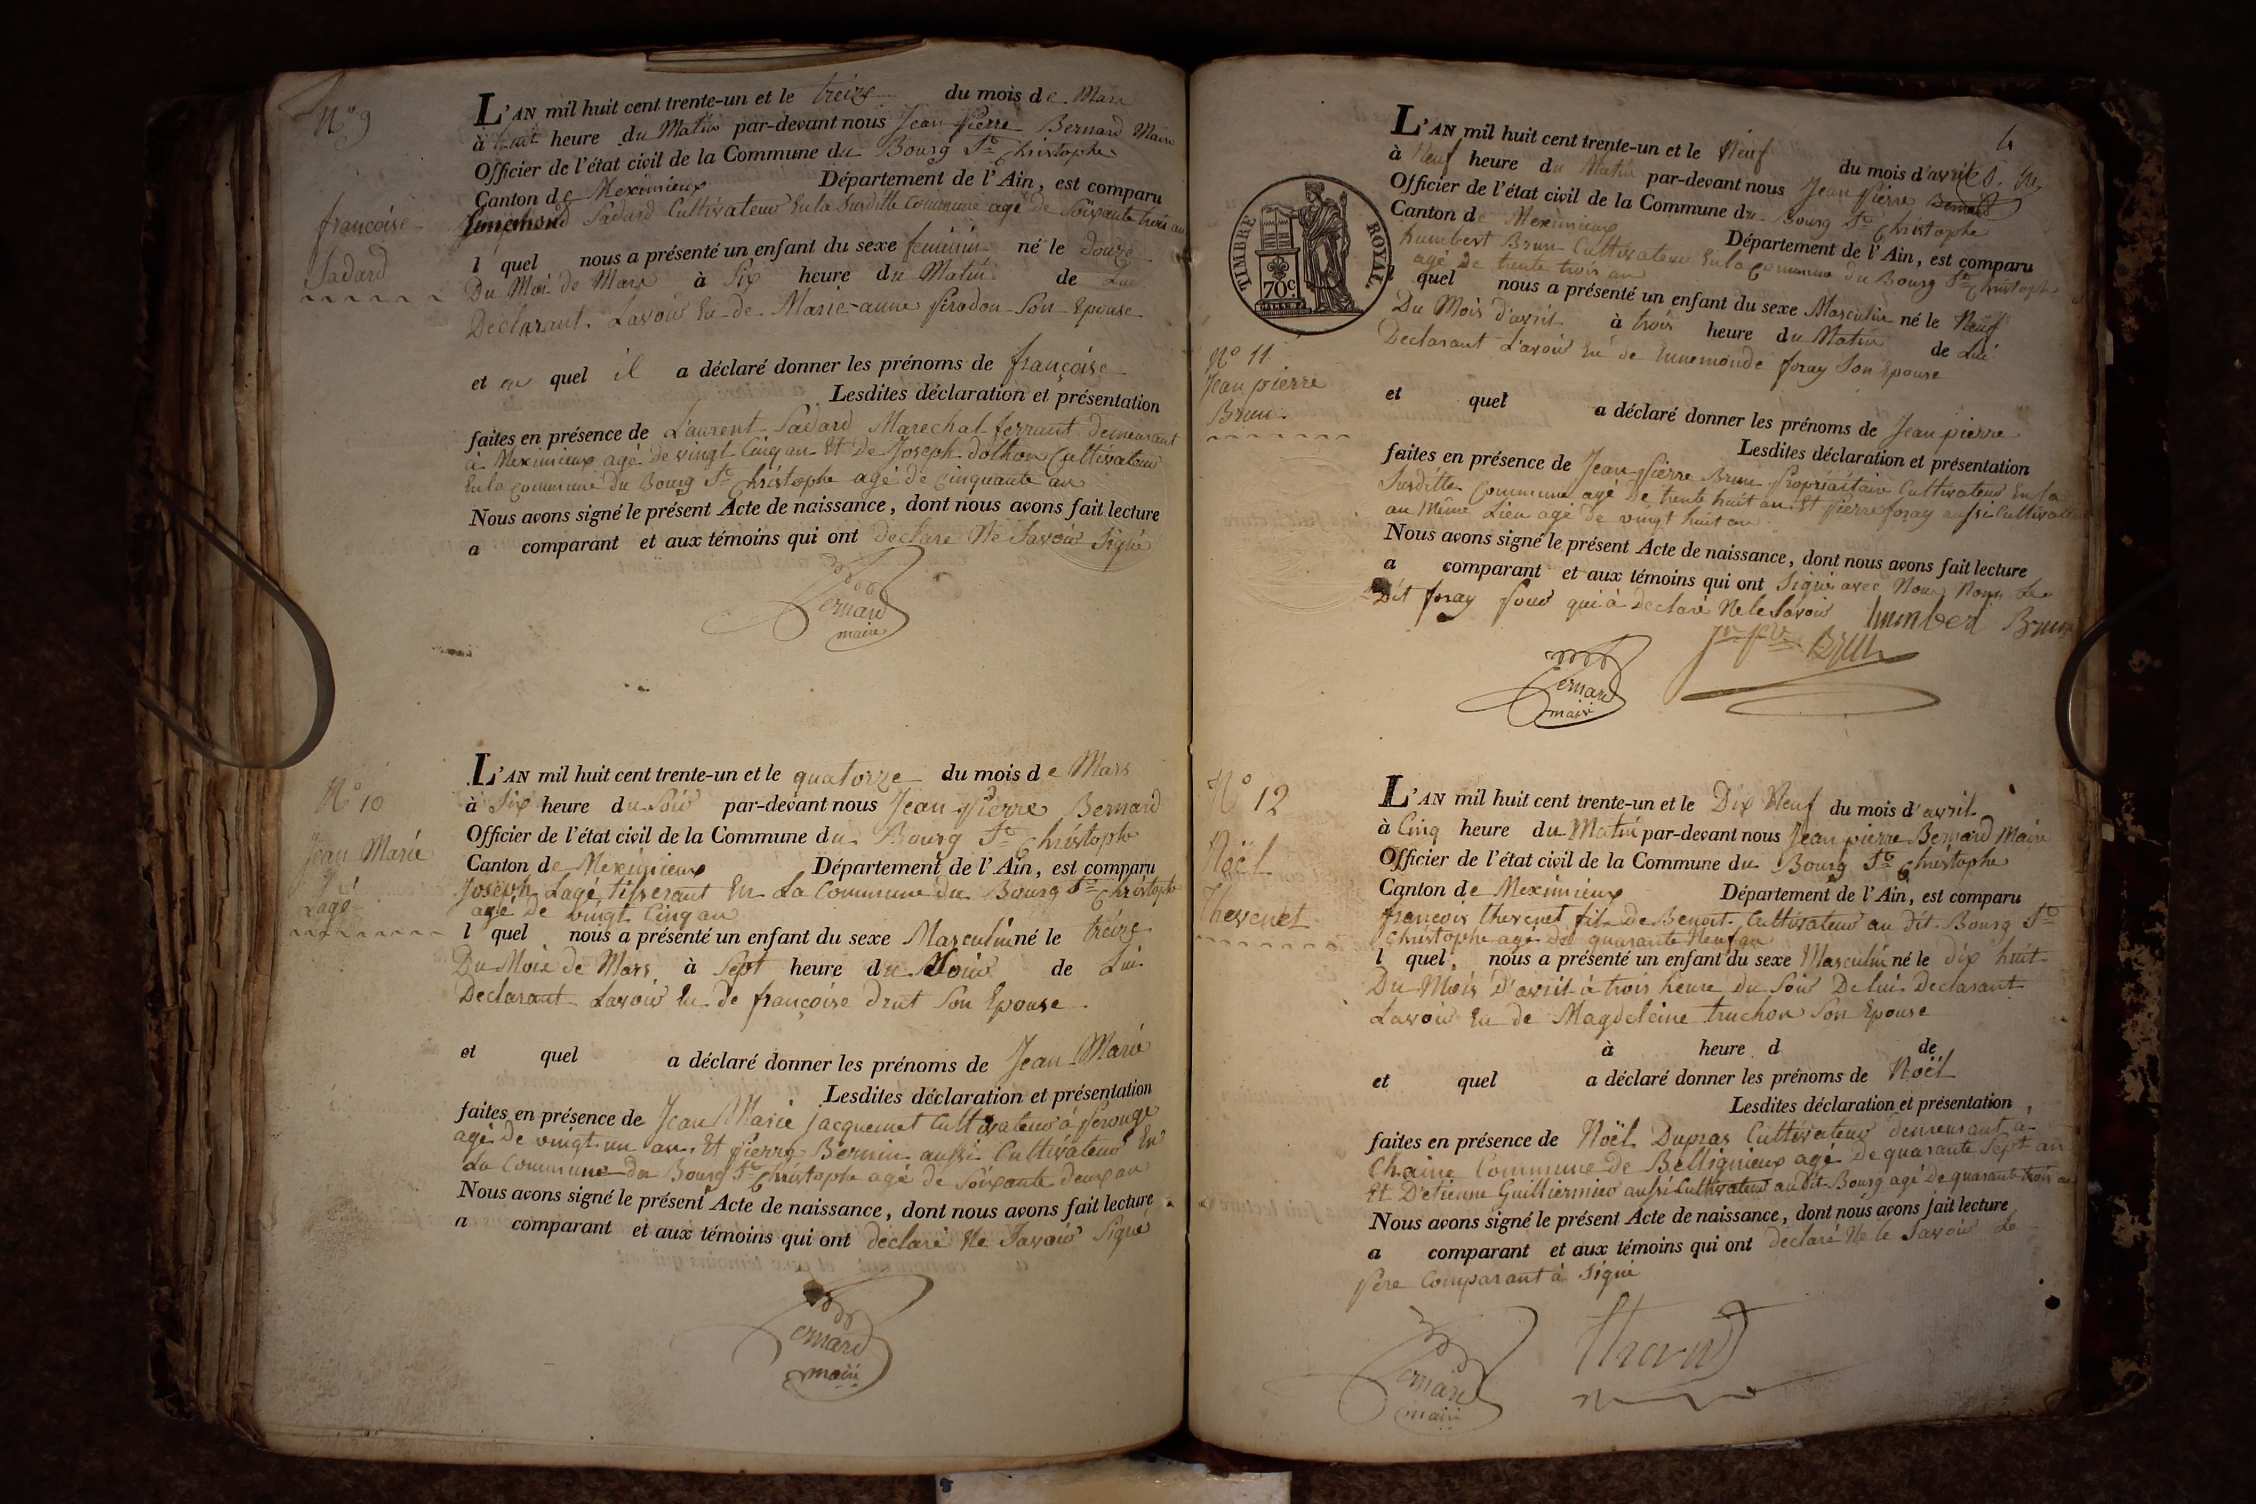 N° 9
françoise
Sadard
L'AN mil huit cent trente-un et le treize du mois de Mars
à huit heure du Matin par-devant nous Jean Pierre Bernard Maire
Officier de l'état civil de la Commune du Bourg St Christophe
Canton de Meximieux Département de l'Ain, est comparu
Sadard Cultivateur En la Surditte Commune agé de Soixante trois an
l quel nous a présenté un enfant du sexe feminin né le douze
Du Mois de Mars à Six heure du Matin de Lui
Declarant Lavoir Eu de Marie-anne Perodon Son Epouse
et au quel il a déclaré donner les prénoms de françoise
Lesdites déclaration et présentation
faites en présence de Laurent Sadard Marechal ferrant demeurant
à Meximieux agé de vingt Cinq an Et De Joseph dothon Cultivateur
En la Commune du Bourg St Christophe agé de Cinquante an
Nous avons signé le présent Acte de naissance, dont nous avons fait lecture
a comparant et aux témoins qui ont declaré Ne Savoir Signé
Bernard
maire
N° 10
Jean Marie
Lagé
L'AN mil huit cent trente-un et le quatorze du mois de Mars
à Six heure du Soir par-devant nous Jean Pierre Bernard
Officier de l'état civil de la Commune du Bourg St Christophe
Canton de Meximieux Département de l'Ain, est comparu
Joseph Lagé tisserant En La Commune du Bourg St Christophe
agé De vingt Cinq an
l quel nous a présenté un enfant du sexe Masculin né le treize
Du Mois de Mars à Sept heure du Soir de Lui
Declarant Lavoir Eu de françoise Drut Son Epouse
et quel a déclaré donner les prénoms de Jean Marie
Lesdites déclaration et présentation
faites en présence de Jean Marie jacquemet Cultivateur à Perouge
agé de vingt un an. Et pierre Bernin aussi Cultivateur En
La Commune du Bourg St Christophe agé de Soixante deux an
Nous avons signé le présent Acte de naissance, dont nous avons fait lecture
a comparant et aux témoins qui ont declaré Ne Savoir Signé
Bernard
maire
4
TIMBRE ROYAL
70c
N° 11
Jean pierre
Brun
L'AN mil huit cent trente-un et le Neuf du mois d'avril
à Neuf heure du Matin par-devant nous Jean Pierre Bernard
Officier de l'état civil de la Commune du Bourg St Christophe
Canton de Meximieux Département de l'Ain, est comparu
humbert Brun Cultivateur En la Commune du Bourg St Christophe
agé De trente trois an
l quel nous a présenté un enfant du sexe Masculin né le Neuf
Du Mois d'avril à trois heure du Matin de Lui
Declarant L'avoir Eu de Ennemonde foray Son Epouse
et quel a déclaré donner les prénoms de Jean pierre
Lesdites déclaration et présentation
faites en présence de Jean Pierre Brun Propriaitaire Cultivateur En la
Surditte Commune agé De trente huit an. Et pierre foray aussi Cultivateur
au Même Lieu agé de vingt huit an
Nous avons signé le présent Acte de naissance, dont nous avons fait lecture
a comparant et aux témoins qui ont Signé avec Nous Non Le
Dit foray qui à Declaré Ne le Savoir humbert Brun
Brun
Bernard
maire
N° 12
Noël
Thevenet
L'AN mil huit cent trente-un et le Dix Neuf du mois d'avril
à Cinq heure du Matin par-devant nous Jean pierre Bernard Maire
Officier de l'état civil de la Commune du Bourg St Christophe
Canton de Meximieux Département de l'Ain, est comparu
françois thevenet fils De Benoit Cultivateur au dit Bourg St
Christophe agé De quarante Neuf an
l quel nous a présenté un enfant du sexe Masculin né le dix huit
Du Mois D'avril à trois heure Du Soir De lui Declarant
Lavoir Eu de Magdeleine truchon Son Epouse
à heure d de
et quel a déclaré donner les prénoms de Noël
Lesdites déclaration et présentation
faites en présence de Noël Dupras Cultivateur demeurant à
Chaine Commune De Bellignieux agé De quarante Sept an
Et D'etienne Guilliermier aussi Cultivateur au Dit Bourg agé De quarant trois an
Nous avons signé le présent Acte de naissance, dont nous avons fait lecture
a comparant et aux témoins qui ont déclaré Ne le Savoir Le
Père Comparant à Signé
Bernard
maire